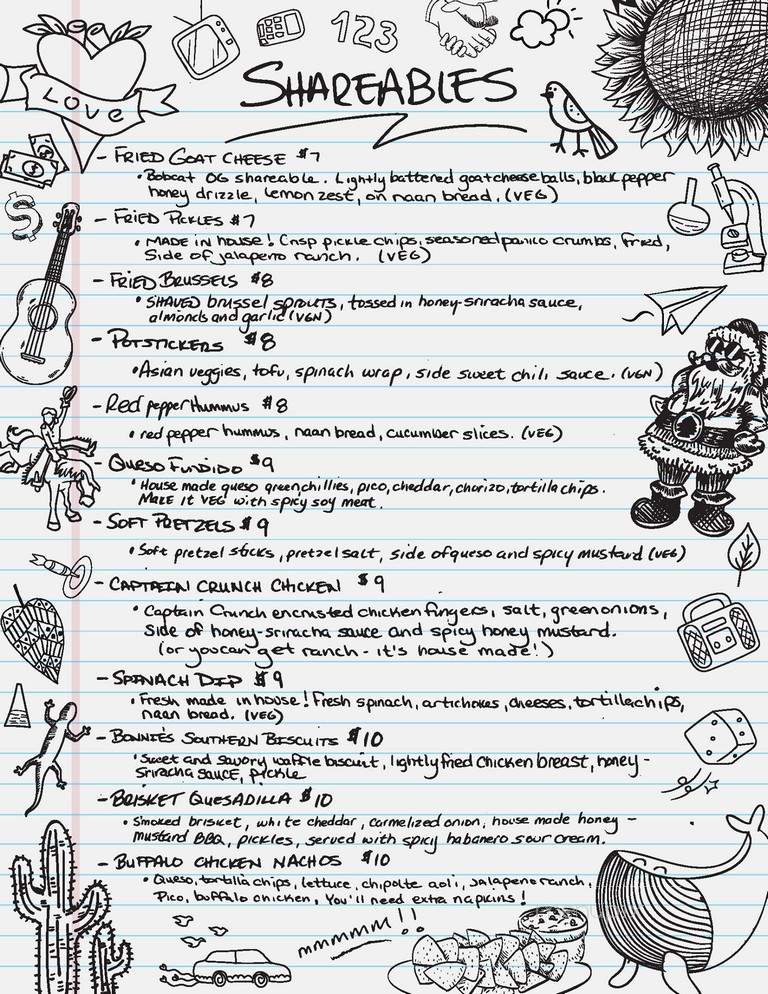 123
LOVE
SHAREABLES
- FRIED GOAT CHEESE $7
• Bobcat OG shareable. Lightly battered goatcheese balls, black pepper
honey drizzle, lemon zest, on naan bread. (VEG)
- FRIED PICKLES $7
• MADE IN house! Crisp pickle chips, seasoned panko crumbs, fried,
Side of jalapeno ranch. (VEG)
- FRIED BRUSSELS $8
• SHAVED brussel sprouts, tossed in honey-sriracha sauce,
almonds and garlic (VGN)
- POTSTICKERS $8
• Asian veggies, tofu, spinach wrap, side sweet chili sauce. (VGN)
- Red pepper Hummus $8
• red pepper hummus, naan bread, cucumber slices. (VEG)
- QUESO FUNDIDO $9
• House made queso green chillies, pico, cheddar, chorizo, tortilla chips.
MAKE IT VEG with spicy soy meat.
- SOFT PRETZELS $9
• Soft pretzel sticks, pretzel salt, side of queso and spicy mustard (VEG)
- CAPTAIN CRUNCH CHICKEN $9
• Captain Crunch encrusted chicken fingers, salt, green onions,
Side of honey-sriracha sauce and spicy honey mustard.
(or you can get ranch - it's house made!)
- SPINACH DIP $9
• Fresh made in house! Fresh spinach, artichokes, cheeses, tortilla chips,
naan bread. (VEG)
- BONNIE'S SOUTHERN BISCUITS $10
• Sweet and savory waffle biscuit, lightly fried chicken breast, honey-
sriracha sauce, pickle
- BRISKET QUESADILLA $10
• Smoked brisket, white cheddar, carmelized onion, house made honey -
mustard BBQ, pickles, served with spicy habanero sour cream.
- BUFFALO CHICKEN NACHOS $10
• Queso, tortilla chips, lettuce, chipolte aoli, jalapeno ranch,
Pico, buffalo chicken, You'll need extra napkins!
mmmmm!!